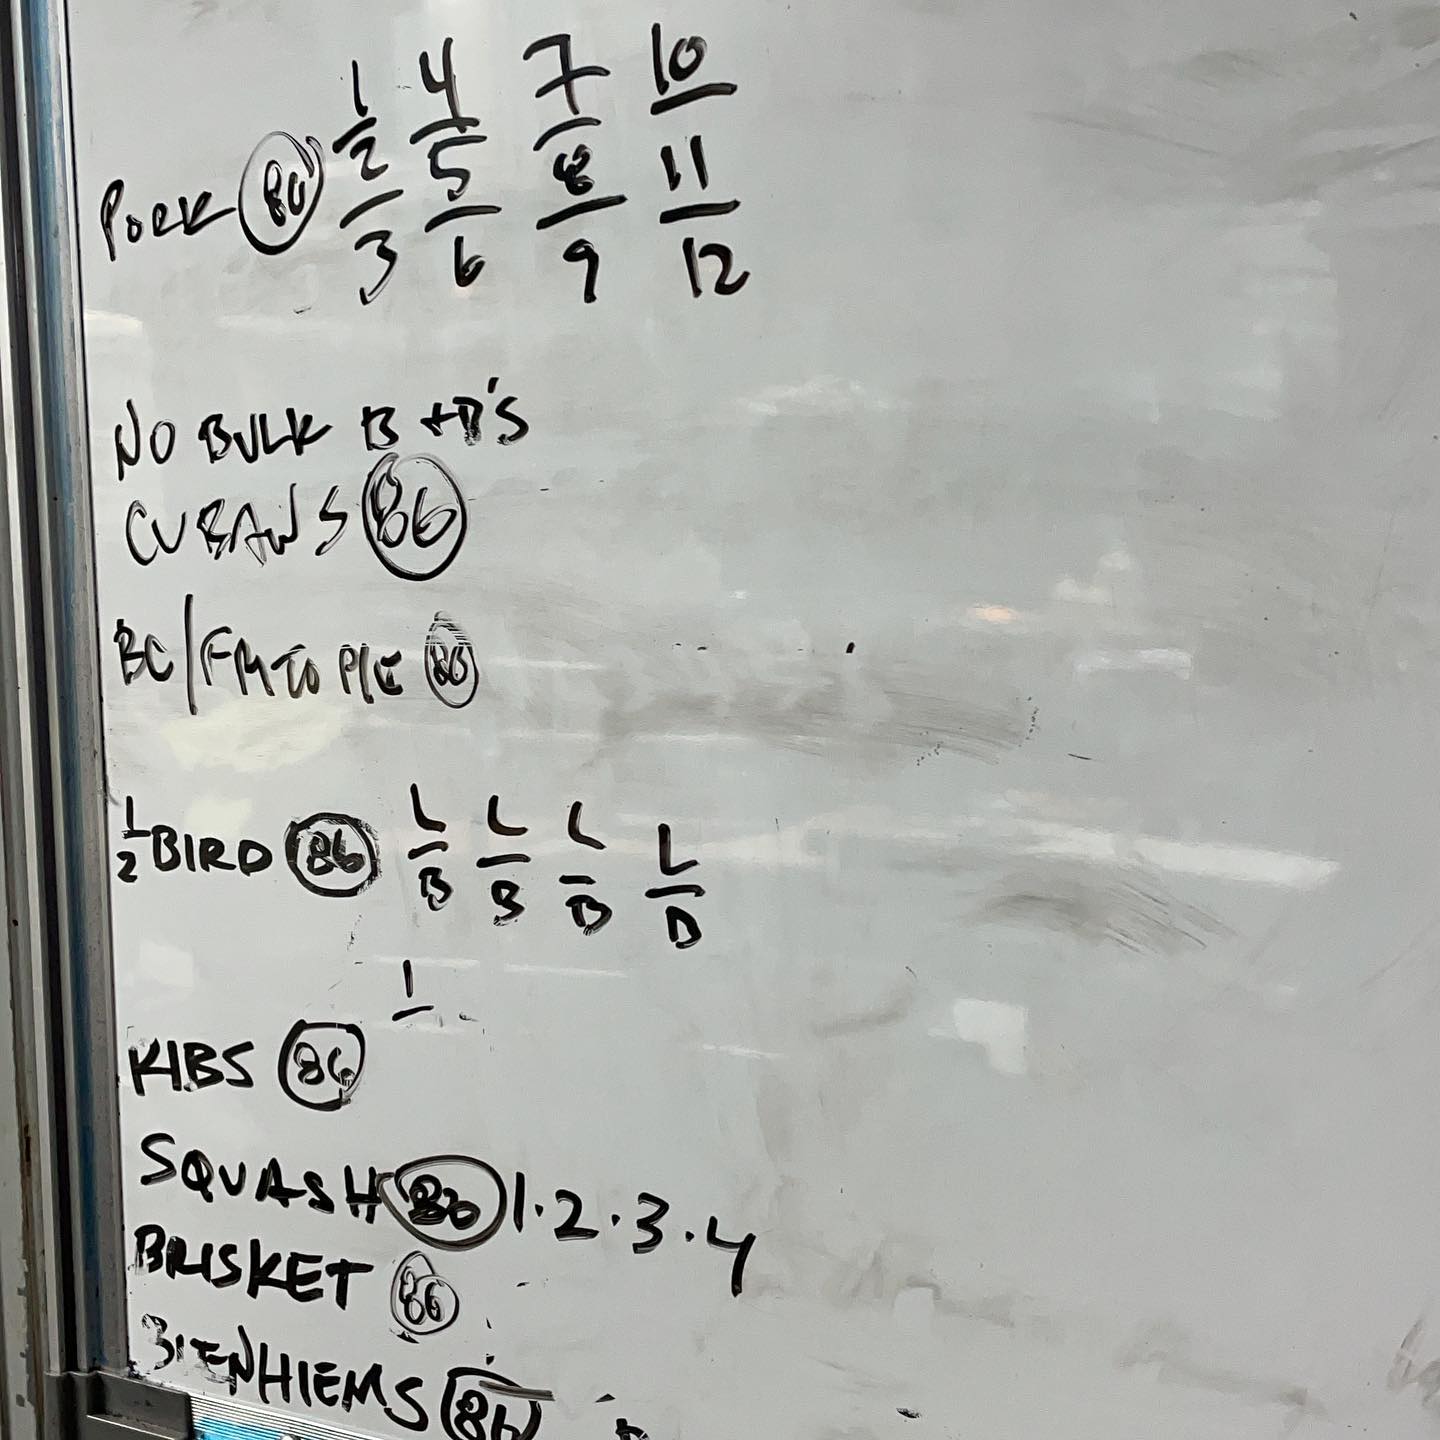 1 4 7 10
2 5 8 11
PORK 86
3 6 9 12
NO BULK B +B'S
CUBANS 86
BC/FRITO PIE 86
1/2 BIRD 86 L/B L/B L/B L/B
1
RIBS 86
SQUASH 86 1.2.3.4
BRISKET 86
BIENHIEMS 86